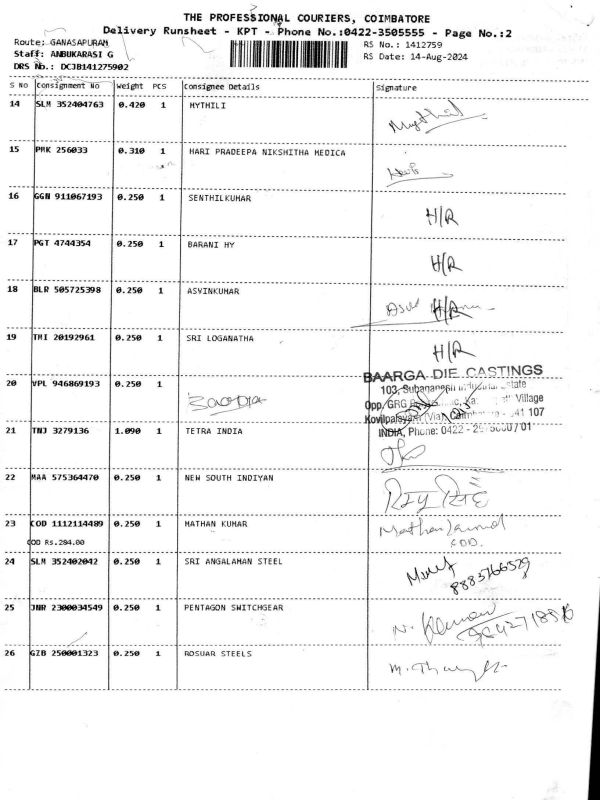 THE PROFESSIONAL COURIERS, COIMBATORE
Delivery Runsheet - KPT - Phone No.:0422-3505555 - Page No.:2
Route: GANASAPURAM
RS No.: 1412759
Staff: ANBUKARASI G
RS Date: 14-Aug-2024
DRS No.: DCJB141275902
S No Consignment No Weight PCS Consignee Details Signature
14 SLM 352404763 0.420 1 MYTHILI Mythili
15 PMK 256033 0.310 1 HARI PRADEEPA NIKSHITHA MEDICA
16 GGN 911067193 0.250 1 SENTHILKUMAR H/R
17 PGT 4744354 0.250 1 BARANI HY H/R
18 BLR 505725398 0.250 1 ASVINKUMAR H/R
19 TMI 20192961 0.250 1 SRI LOGANATHA H/R
BAARGA DIE CASTINGS
20 VPL 946869193 0.250 1 Baarga
103, Industrial Estate
Opp. GRG Village
Kovilpalayam (Via), 641 107
INDIA, Phone: 0422 -
21 TNJ 3279136 1.090 1 TETRA INDIA
22 MAA 575364470 0.250 1 NEW SOUTH INDIYAN
23 COD 1112114489 0.250 1 MATHAN KUMAR
COD Rs.204.00 COD.
24 SLM 352402042 0.250 1 SRI ANGALAMAN STEEL
8883766529
25 JNR 2300034549 0.250 1 PENTAGON SWITCHGEAR
26 GZB 250001323 0.250 1 ROSUAR STEELS